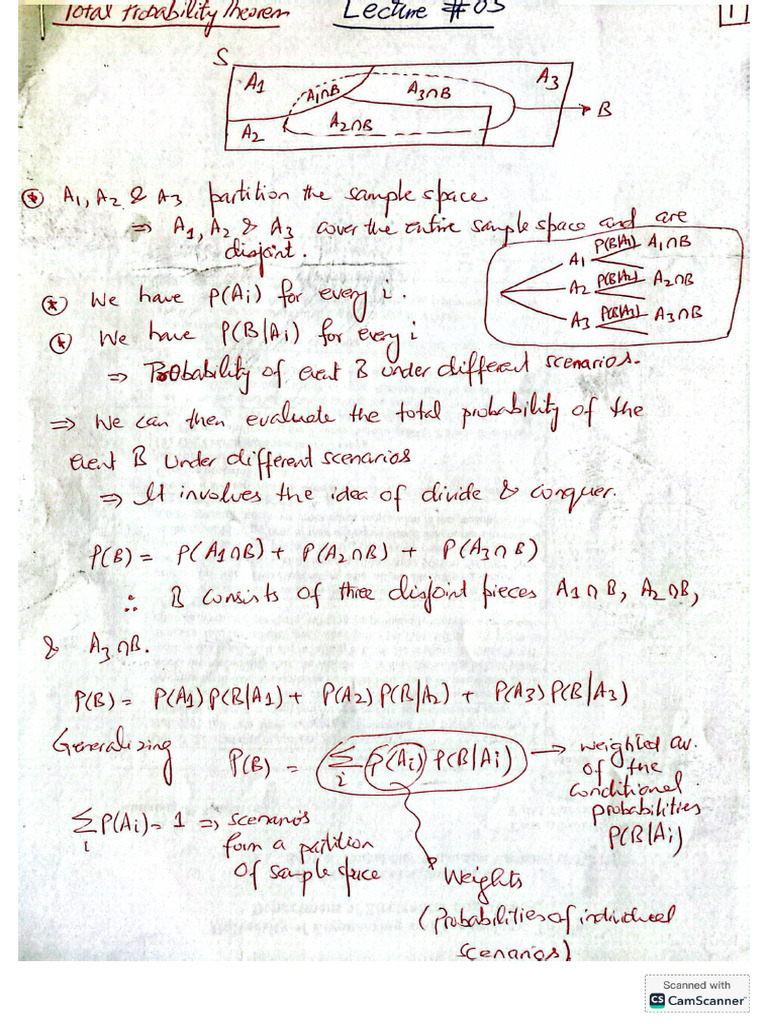 Total Probability Theorem Lecture #03 1
S A1 A1∩B A3∩B A3
A2 A2∩B B
⊛ A1, A2 & A3 partition the sample space
⇒ A1, A2 & A3 cover the entire sample space and are
disjoint.
A1 P(B|A1) A1∩B
A2 P(B|A2) A2∩B
A3 P(B|A3) A3∩B
⊛ We have P(Ai) for every i.
⊛ We have P(B|Ai) for every i
⇒ Probability of event B under different scenarios.
⇒ We can then evaluate the total probability of the
event B under different scenarios
⇒ It involves the idea of divide & conquer.
P(B) = P(A1∩B) + P(A2∩B) + P(A3∩B)
∵ B consists of three disjoint pieces A1∩B, A2∩B,
& A3∩B.
P(B) = P(A1)P(B|A1) + P(A2)P(B|A2) + P(A3)P(B|A3)
Generalizing P(B) = Σi P(Ai) P(B|Ai) → weighted av.
of the
conditional
probabilities
P(B|Ai)
Σi P(Ai) = 1 ⇒ scenarios
form a partition
of sample space
Weights
(Probabilities of individual
scenarios)
Scanned with
CS CamScanner